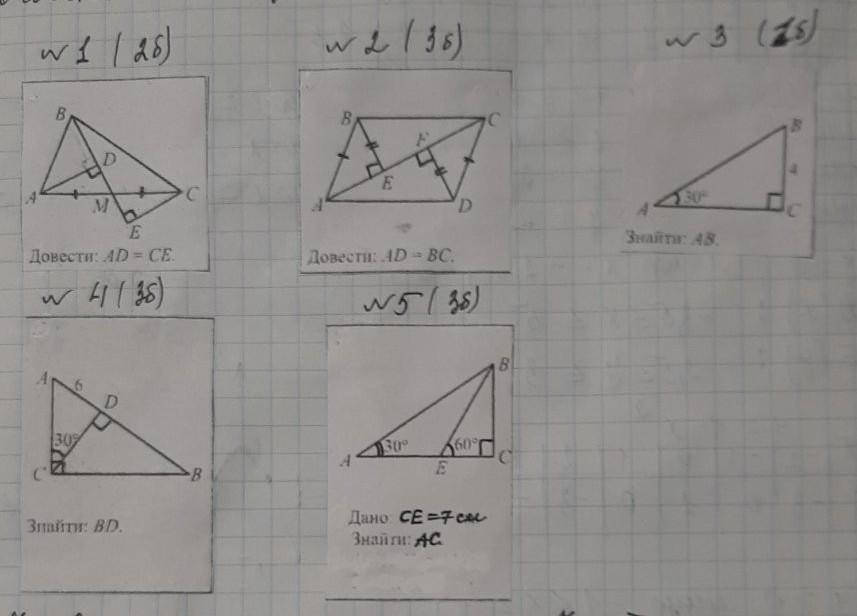 №1 (2б)
B
D
A
M
C
E
Довести: AD = CE.
№2 (3б)
B
C
F
E
A
D
Довести: AD = BC.
№3 (1б)
B
4
A
30°
C
Знайти: AB.
№4 (3б)
A
6
D
30°
C
B
Знайти: BD.
№5 (3б)
B
A
30°
60°
E
C
Дано: CE = 7 см
Знайти: AC